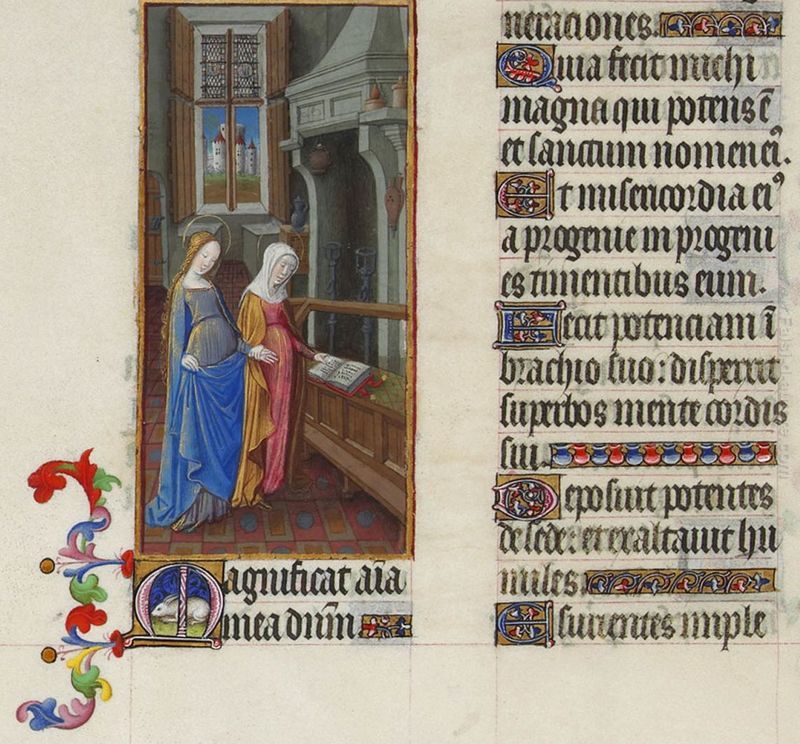 Magnificat aīa
mea dnm̄
neraciones.
Quia fecit michi
magna qui potens ē
et sanctum nomen eiꝰ.
Et misericordia eiꝰ
a progenie in progeni
es timentibus eum.
Fecit potenciam ī
brachio suo: dispersit
superbos mente cordis
sui.
Deposuit potentes
de sede: et exaltauit hu
miles.
Esurientes imple